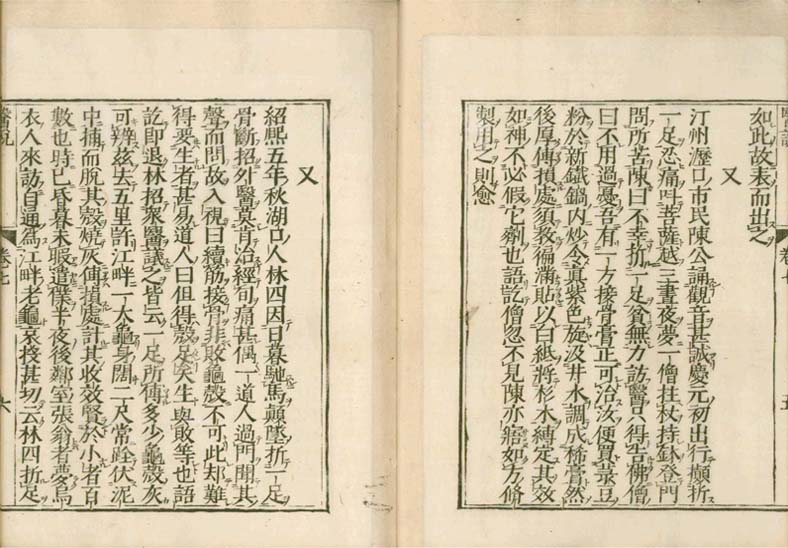 如此故表而出之
又
汀州瀝口市民陳公誦觀音甚誠慶元初出行顚折
一足忍痛呌菩薩越三晝夜夢一僧拄杖持鉢登門
問所苦陳曰不幸折一足貧無力訪醫只得告佛僧
曰不用過憂吾有一方接骨膏正可治汝便買菉豆
粉於新鐵鍋內炒令眞紫色旋汲井水調成稀膏然
後厚傅損處須教徧滿貼以白紙將杉木縛定其效
如神不必假它劑也語訖僧忽不見陳亦寤如方脩
製用之則愈
卷七
五
又
紹熙五年秋湖口人林四因日暮馳馬顚墜折一足
骨斷招外醫莫肯治經旬痛甚偶一道人過門聞其
聲而問故入視曰續筋接骨非敗龜殼不可此却難
得要生者甚易道人曰但得殼足矣生與敗等也語
訖即退林招衆醫議之皆云一足所傅多少龜殼灰
可辨茲去五里許江畔一大龜身闊二尺常跧伏泥
中捕而脫其殼燒灰傅損處計其收效賢於小者百
數也時已昏暮未暇遣僕半夜後鄰室張翁者夢烏
衣人來訪自通爲江畔老龜哀投甚切云林四折足
醫說
卷七
六